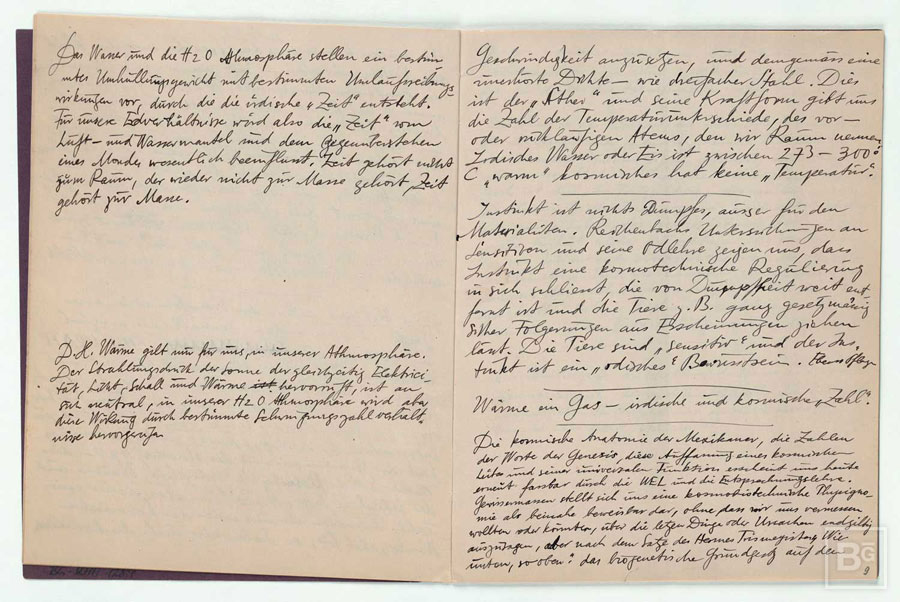 Das Wasser und die H2O Athmosphäre stellen ein bestim
mtes Umhüllungsgewicht mit bestimmten Umlaufreibungs-
wirkungen vor, durch die die irdische „Zeit" entsteht.
Für unsere Erdverhältnisse wird also die „Zeit" vom
Luft- und Wassermantel und dem Gegenüberstehen
eines Mondes wesentlich beeinflusst. Zeit gehört nicht
zum Raum, der wieder nicht zur Masse gehört, Zeit
gehört zur Masse.
D.H. Wärme gilt nur für uns, in unserer Athmosphäre.
Der Strahlungsdruck der Sonne der gleichzeitig Elektrici-
tät, Licht, Schall und Wärme ist hervorruft, ist an
sich neutral, in unserer H2O Athmosphäre wird aber
diese Wirkung durch bestimmte Schwingungszahlverhält-
nisse hervorgerufen
Geschwindigkeit anzusetzen, und demgemäss eine
unerhörte Dichte – wie dreifacher Stahl. Dies
ist der „Äther" und seine Kraftform gibt uns
die Zahl der Temperaturunterschiede, des vor-
oder rückläufigen Atems, den wir Raum nennen.
Irdisches Wasser oder Eis ist zwischen 273 – 300°
C „warm" kosmisches hat keine „Temperatur".
Instinkt ist nichts Dumpfes, ausser für den
Materialisten. Reichenbachs Untersuchungen an
Sensitiven und seine Odlehre zeigen uns, dass
Instinkt eine kosmotechnische Regulierung
in sich schliesst, die von Dumpfheit weit ent
fernt ist und die Tiere z.B. ganz gesetzmässig
sicher Folgerungen aus Erscheinungen ziehen
lässt. Die Tiere sind „sensitiv" und der In-
stinkt ist ein „odisches" Bewusstsein. Ebenso Pflanze
Wärme ein Gas – irdische und kosmische „Zahl".
Die kosmische Anatomie der Mexikaner, die Zahlen
der Worte der Genesis, diese Auffassung eines kosmischen
und seiner universalen Funktion erscheint uns heute
erneut fassbar durch die WEL und die Entsprechungslehre.
Gewissermassen stellt sich uns eine kosmobiotechnische Physiogno-
mie als beinahe beweisbar dar, ohne dass wir uns vermessen
wollten oder könnten, über die letzen Dinge oder Ursachen endgiltig
auszusagen, aber nach dem Satze des Hermes Trismegistos „Wie
unten, so oben" das biogenetische Grundgesetz auf den
9
BG